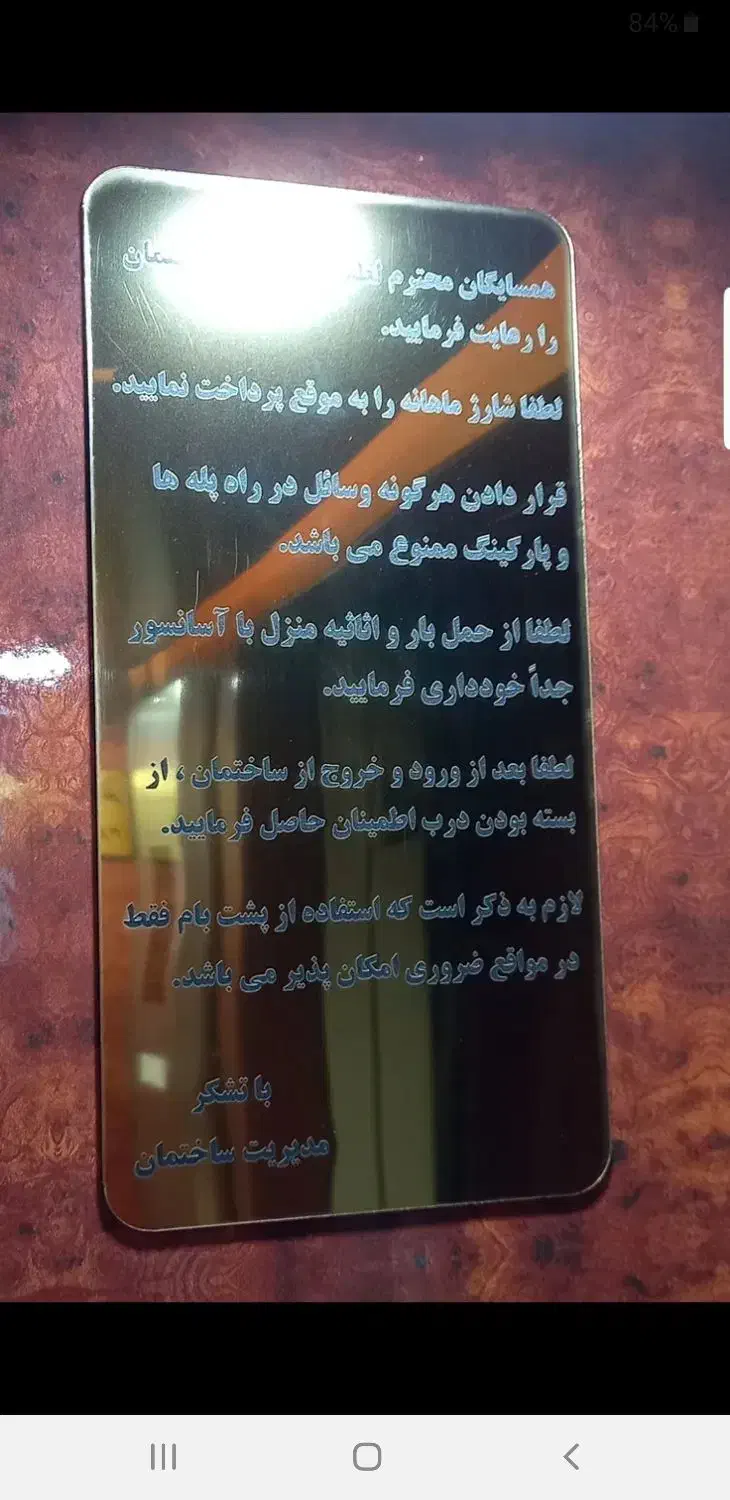 84%
همسایگان محترم
را رعایت فرمایید.
لطفا شارژ ماهانه را به موقع پرداخت نمایید.
قرار دادن هرگونه وسائل در راه پله ها
و پارکینگ ممنوع می باشد.
لطفا از حمل بار و اثاثیه منزل با آسانسور
جداً خودداری فرمایید.
لطفا بعد از ورود و خروج از ساختمان ، از
بسته بودن درب اطمینان حاصل فرمایید.
لازم به ذکر است که استفاده از پشت بام فقط
در مواقع ضروری امکان پذیر می باشد.
با تشکر
مدیریت ساختمان